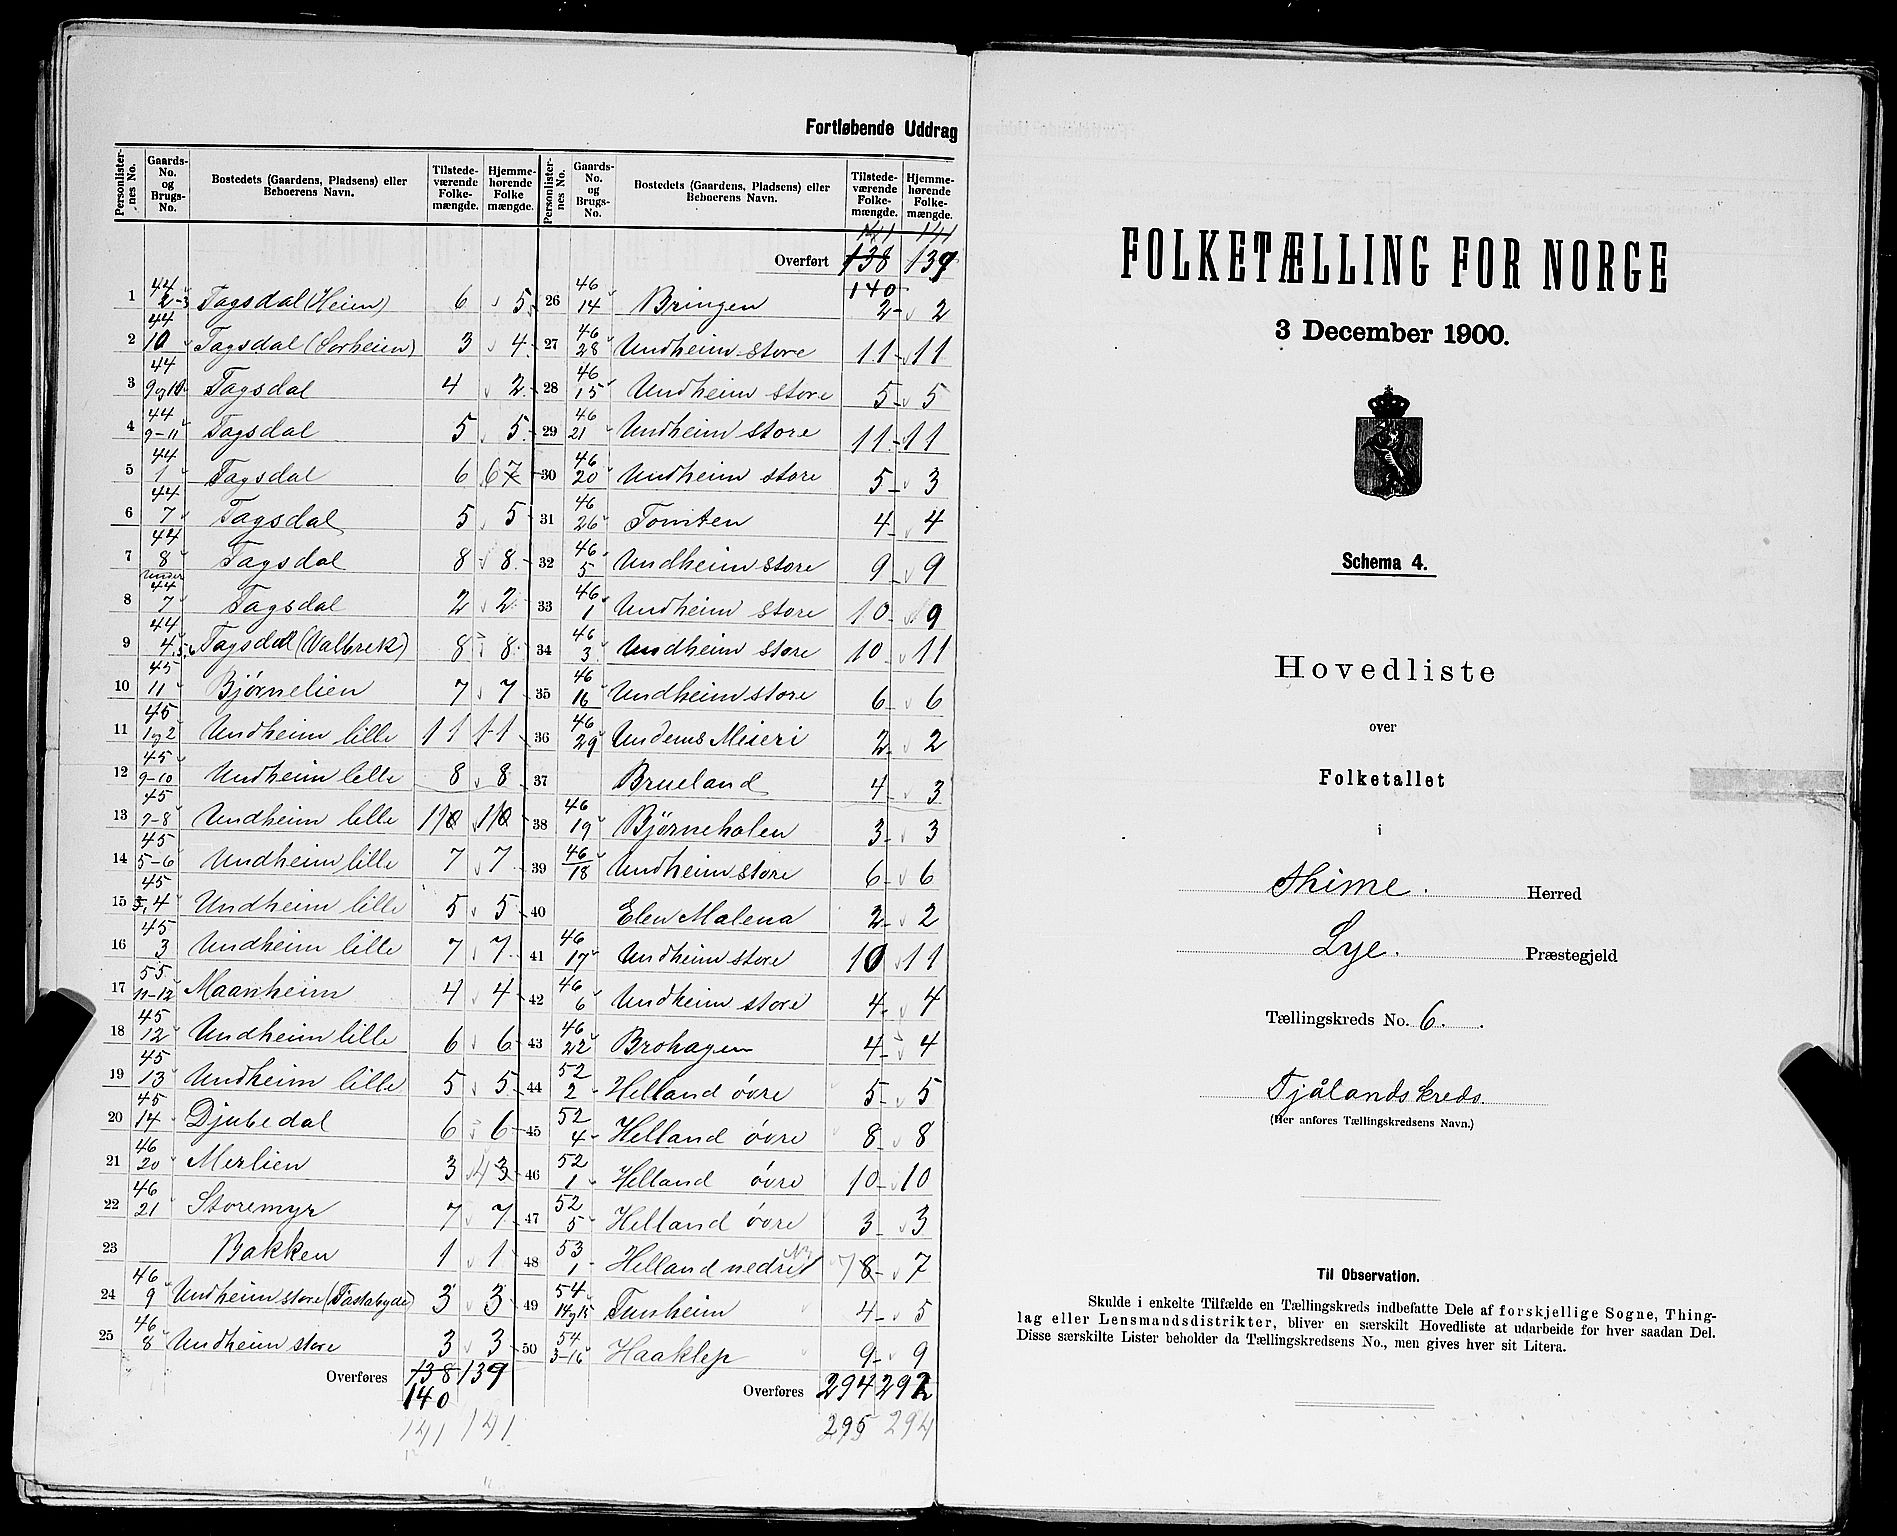 Fortløbende Uddrag
Personlisternes No. | Gaards-No. og Brugs-No. | Bostedets (Gaardens, Pladsens) eller Beboerens Navn. | Tilstedeværende Folkemængde. | Hjemmehørende Folkemængde.
1 | 44 2-3 | Tagsdal (Heien) | 6 | 5
2 | 44 10 | Tagsdal (Sørheien) | 3 | 4
3 | 44 9og10 | Tagsdal | 4 | 2
4 | 44 9-11 | Tagsdal | 5 | 5
5 | 44 1 | Tagsdal | 6 | 6 7
6 | 44 7 | Tagsdal | 5 | 5
7 | 44 8 | Tagsdal | 8 | 8
8 | Under 44 7 | Tagsdal | 2 | 2
9 | 44 4,5,6 | Tagsdal (Valbrek) | 8 | 8
10 | 45 11 | Bjørnelien | 7 | 7
11 | 45 1og2 | Undheim lille | 11 | 11
12 | 45 9-10 | Undheim lille | 8 | 8
13 | 45 7-8 | Undheim lille | 110 | 110
14 | 45 5-6 | Undheim lille | 7 | 7
15 | 45 3,4 | Undheim lille | 5 | 5
16 | 45 3 | Undheim lille | 7 | 7
17 | 55 11-12 | Maanheim | 4 | 4
18 | 45 12 | Undheim lille | 6 | 6
19 | 45 13 | Undheim lille | 5 | 5
20 | 45 14 | Djubedal | 6 | 6
21 | 46 20 | Merlien | 3 | 4 3
22 | 46 21 | Storemyr | 7 | 7
23 | Bakken | 1 | 1
24 | 46 9 | Undheim store (Tastabyde) | 3 | 3
25 | 46 8 | Undheim store | 3 | 3
Overføres 138 139
140
141 141
Personlisternes No. | Gaards-No. og Brugs-No. | Bostedets (Gaardens, Pladsens) eller Beboerens Navn. | Tilstedeværende Folkemængde. | Hjemmehørende Folkemængde.
141 141
Overført 138 139
140
26 | 46 14 | Bringen | 2 | 2
27 | 46 28 | Undheim store | 11 | 11
28 | 46 15 | Undheim store | 5 | 5
29 | 46 21 | Undheim store | 11 | 11
30 | 46 20 | Undheim store | 5 | 3
31 | 46 26 | Tomten | 4 | 4
32 | 46 5 | Undheim store | 9 | 9
33 | 46 1 | Undheim store | 10 | 9
34 | 46 3 | Undheim store | 10 | 11
35 | 46 16 | Undheim store | 6 | 6
36 | 46 29 | Undems Meieri | 2 | 2
37 | Brueland | 4 | 3
38 | 46 19 | Bjørneholen | 3 | 3
39 | 46 18 | Undheim store | 6 | 6
40 | Elen Malena | 2 | 2
41 | 46 17 | Undheim store | 10 | 11
42 | 46 6 | Undheim store | 4 | 4
43 | 46 22 | Brohagen | 4 | 4
44 | 52 2 | Helland övre | 5 | 5
45 | 52 4 | Helland övre | 8 | 8
46 | 52 1 | Helland övre | 10 | 10
47 | 52 5 | Helland övre | 3 | 3
48 | 53 1 | Helland nedre | 7 8 | 7
49 | 54 14og15 | Tunheim | 4 | 5
50 | 54 3-16 | Haaklep | 9 | 9
Overføres 294 292
295 294
FOLKETÆLLING FOR NORGE
3 December 1900.
Schema 4.
Hovedliste
over
Folketallet
i
Thime. Herred
Lye. Præstegjeld
Tællingskreds No. 6.
Tjålandskreds
(Her anføres Tællingskredsens Navn.)
Til Observation.
Skulde i enkelte Tilfælde en Tællingskreds indbefatte Dele af forskjellige Sogne, Thing-
lag eller Lensmandsdistrikter, bliver en særskilt Hovedliste at udarbeide for hver saadan Del.
Disse særskilte Lister beholder da Tællingskredsens No., men gives hver sit Litera.